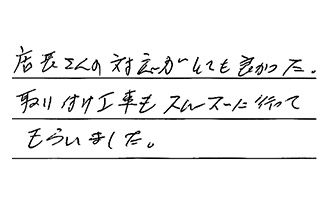 店長さんの対応がとても良かった。
取り付け工事もスムーズに行って
もらいました。